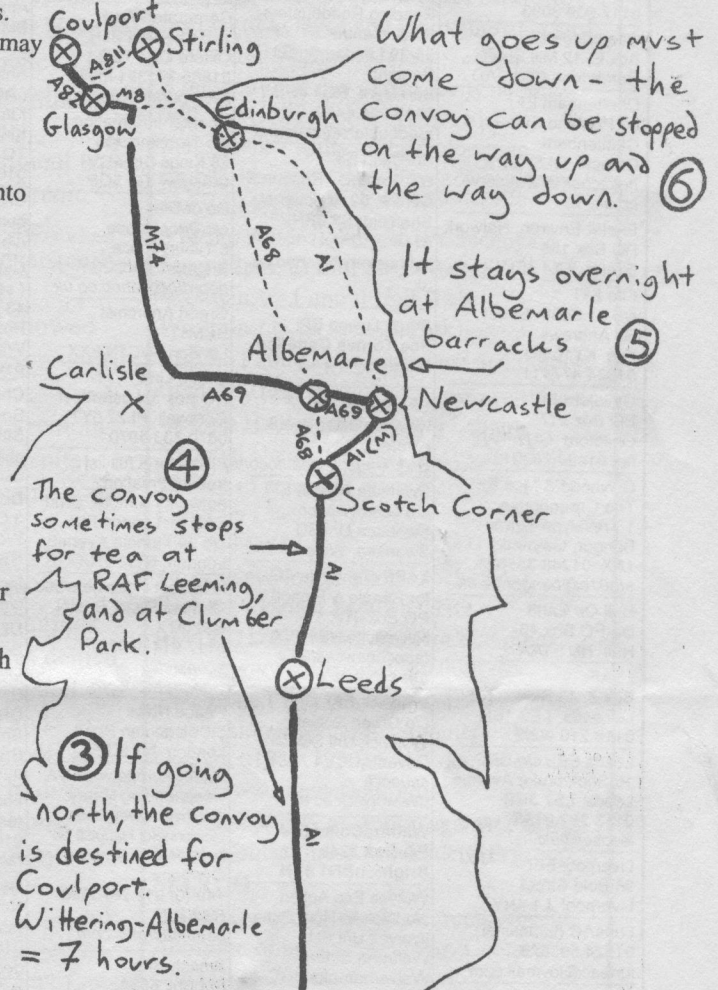 s.
may
nto
r
h
Coulport
Stirling
A811
A82
M8
Glasgow
Edinburgh
What goes up must
come down - the
convoy can be stopped
on the way up and
the way down. 6
M74
A68
A1
It stays overnight
at Albemarle
barracks 5
Albemarle
Carlisle
A69
A69
Newcastle
A68
A1(M)
4
The convoy
sometimes stops
for tea at
RAF Leeming,
and at Clumber
Park.
Scotch Corner
A1
Leeds
3 If going
north, the convoy
is destined for
Coulport.
Wittering-Albemarle
= 7 hours.
A1